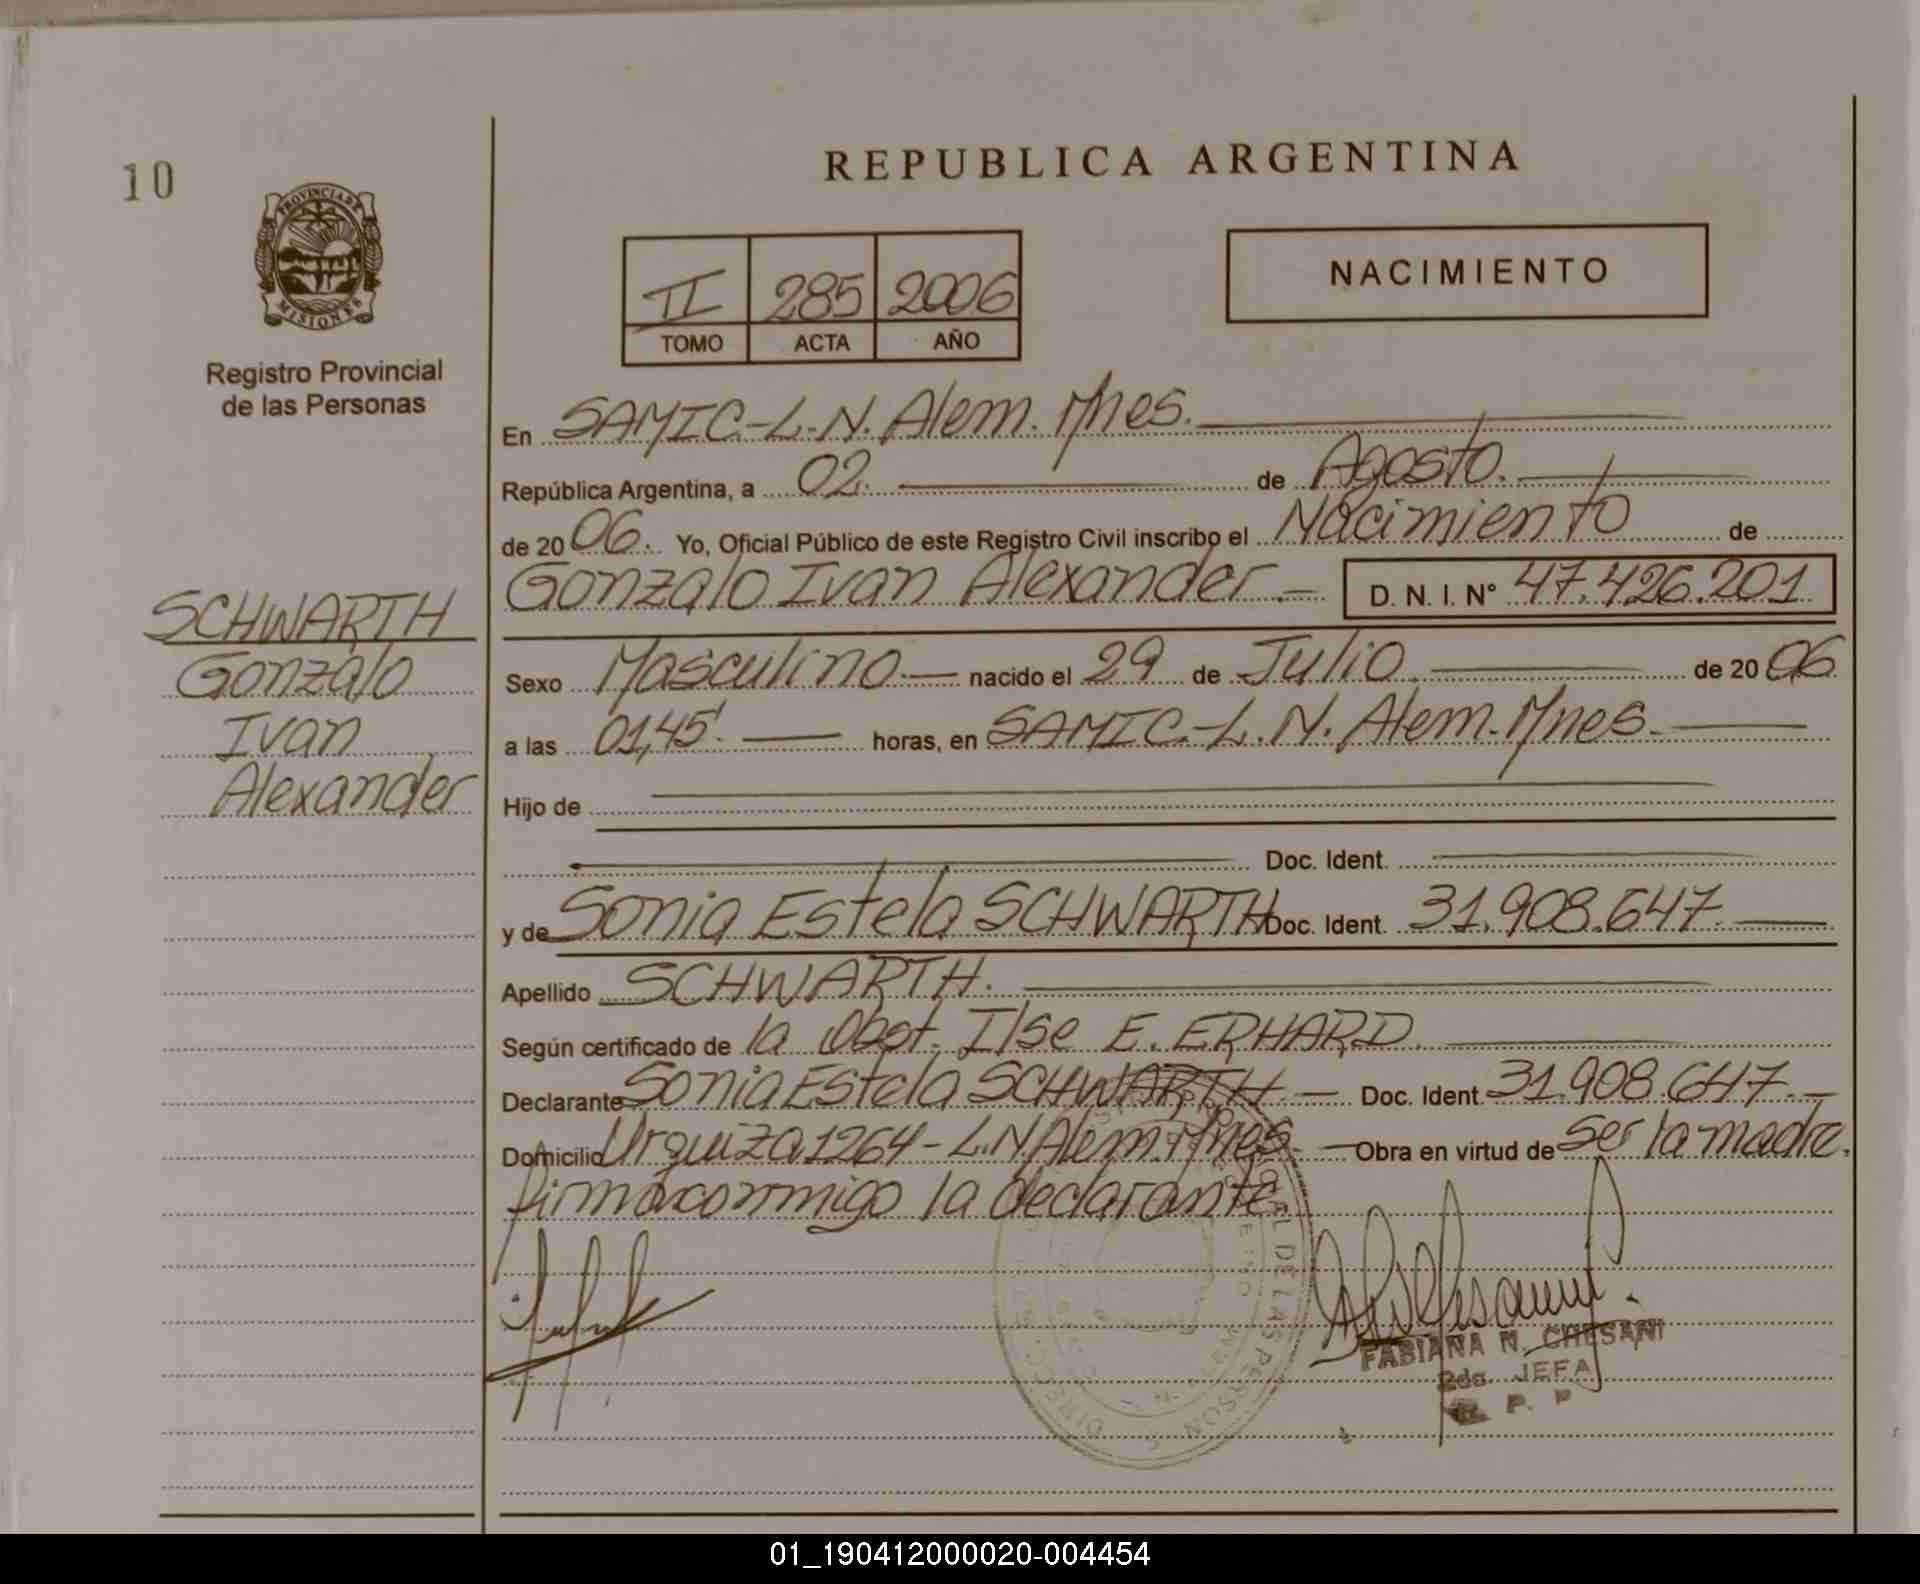 10
PROVINCIA DE
MISIONES
Registro Provincial
de las Personas
SCHWARTH
Gonzalo
Ivan
Alexander
REPUBLICA ARGENTINA
II 285 2006
TOMO ACTA AÑO
NACIMIENTO
En SAMIC.-L.N. Alem. Mnes.
República Argentina, a 02. de Agosto.
de 2006. Yo, Oficial Público de este Registro Civil inscribo el Nacimiento de
Gonzalo Ivan Alexander.- D. N. I. N° 47.426.201
Sexo Masculino.- nacido el 29 de Julio. de 2006
a las 01,45'. horas, en SAMIC.-L.N. Alem. Mnes.
Hijo de
Doc. Ident.
y de Sonia Estela SCHWARTH Doc. Ident. 31.908.647.
Apellido SCHWARTH.
Según certificado de la Obst. Ilse E. ERHARD.
Declarante Sonia Estela SCHWARTH.- Doc. Ident. 31.908.647.-
Domicilio Urquiza 1264-L.N. Alem. Mnes. - Obra en virtud de Ser la madre.
firma conmigo la declarante
FABIANA N. CHESANI
2da. JEFA
R. P. P
01_190412000020-004454